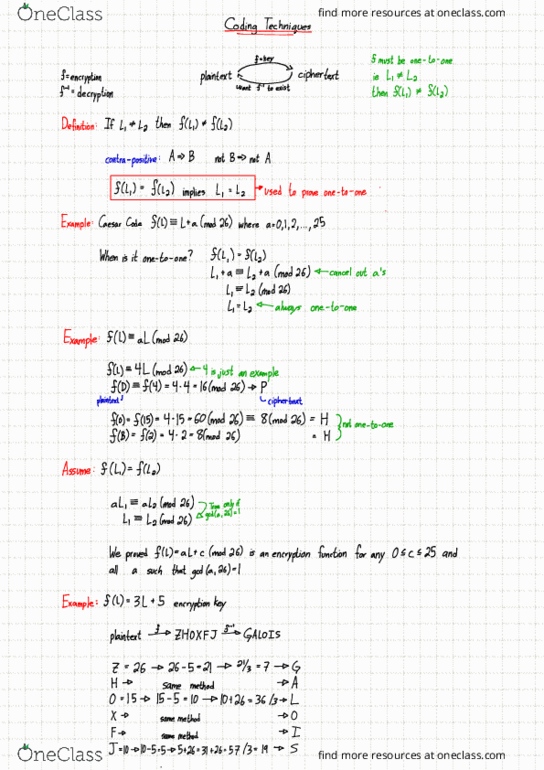 OneClass
find more resources at oneclass.com
Coding Techniques
f=key
f=encryption
f⁻¹=decryption
plaintext
ciphertext
want f⁻¹ to exist
f must be one-to-one
ie L₁ ≠ L₂
then f(L₁) ≠ f(L₂)
Definition: If L₁ ≠ L₂ then f(L₁) ≠ f(L₂)
contra-positive: A ⇒ B not B ⇒ not A
f(L₁) = f(L₂) implies L₁ = L₂ → used to prove one-to-one
Example: Caesar Code f(L) ≡ L+a (mod 26) where a=0,1,2,...,25
When is it one-to-one? f(L₁) = f(L₂)
L₁+a ≡ L₂+a (mod 26) ← cancel out a's
L₁ ≡ L₂ (mod 26)
L₁ = L₂ ← always one-to-one
Example: f(L) ≡ aL (mod 26)
f(L) ≡ 4L (mod 26) ← 4 is just an example
f(D) ≡ f(4) = 4·4 = 16 (mod 26) → P
plaintext
ciphertext
f(O) = f(15) = 4·15 = 60 (mod 26) ≡ 8 (mod 26) = H
f(B) = f(2) = 4·2 = 8 (mod 26) = H
not one-to-one
Assume: f(L₁) = f(L₂)
aL₁ ≡ aL₂ (mod 26)
L₁ ≡ L₂ (mod 26)
True only if
gcd(a,26)=1
We proved f(L)=aL+c (mod 26) is an encryption function for any 0≤c≤25 and
all a such that gcd(a,26)=1
Example: f(L) = 3L+5 encryption key
plaintext f→ ZHOXFJ f⁻¹→ GALOIS
Z = 26 → 26-5=21 → 21/3 = 7 → G
H → same method → A
O = 15 → 15-5 = 10 → 10+26 = 36/3 → L
X → same method → O
F → same method → I
J=10 → 10-5=5 → 5+26=31+26=57/3= 19 → S
OneClass
find more resources at oneclass.com